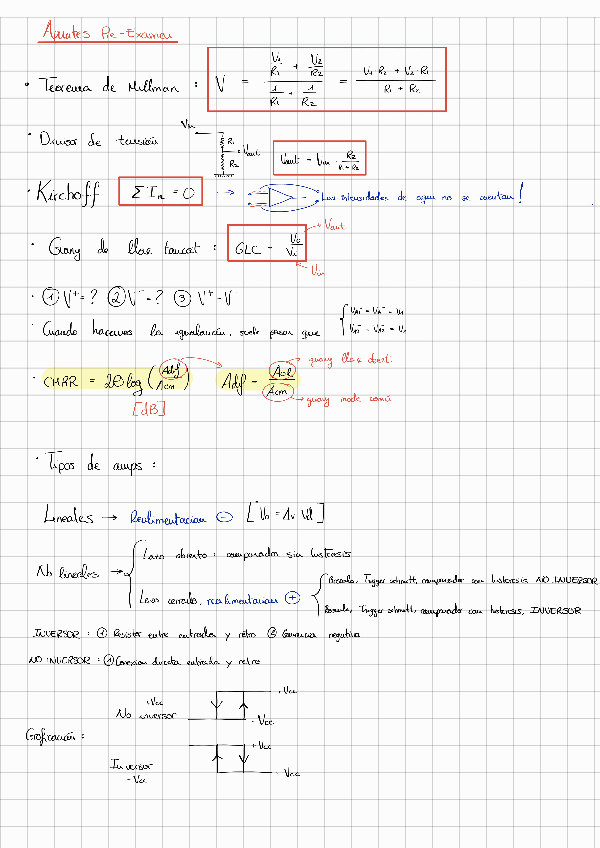 Apuntes Pre-Examen
• Teorema de Millman : V = (V1/R1 + V2/R2) / (1/R1 + 1/R2) = (V1·R2 + V2·R1) / (R1 + R2)
• Divisor de tensión Vin R1 R2 Vout Vout = Vin · R2/(R1+R2)
• Kirchoff Σ In = 0 → Las intensidades de aquí no se cuentan!
• Guany de llaç tancat : GLC = Vo/Vi → Vout
Vin
• ① V+ = ? ② V- = ? ③ V+ = V-
• Cuando hacemos la igualación, suele pasar que
• CMRR = 20 log (Adf/Acm) Adf = AOL/Acm
[dB]
guany llaç obert.
guany mode comú
• Tipos de amps :
Lineales → Realimentacion ⊖ [Vo = Av · Vd]
No lineales → Lazo abierto : comparador sin histeresis
Lazo cerrado, realimentacion ⊕
Bascula, Trigger schmitt, comparador con histeresis NO INVERSOR
Bascula, Trigger schmitt, comparador con histeresis, INVERSOR
INVERSOR : ① Resistor entre entradas y retro ② Ganancia negativa
NO INVERSOR : ① Conexion directa entrada y retro
Graficación :
+Vcc
No inversor
+Vcc
- Vcc
Inversor
- Vcc
+ Vcc
- Vcc